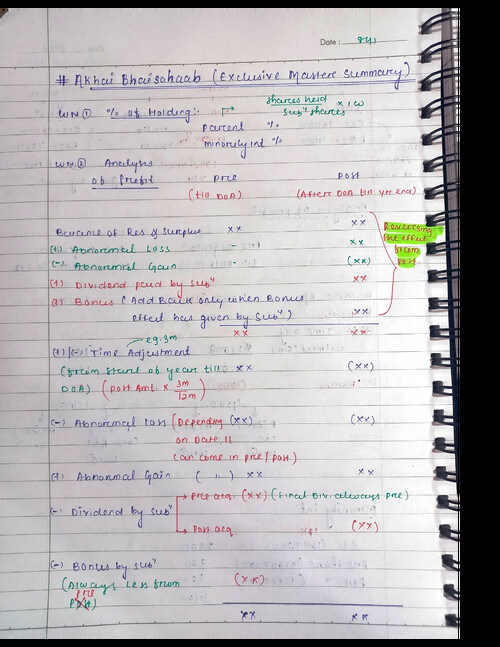 Date: 8/1
# Akhai Bhaisahaab (Exclusive Masters Summary)
WN ① % of Holding:- → shares held x 100
Subʸ shares
Parent %
Minority Int %
WN ② Analysis
of Profit Pre Post
(till DOA) (After DOA till yr end)
Balance of Res & Surplus xx xx
(+) Abnormal Loss xx
(-) Abnormal Gain (xx)
(+) Dividend paid by Subʸ xx
(+) Bonus (Add Back only when Bonus
effect has given by Subʸ) xx
xx xx
Reversing
the effect
from
Post
eg. 3m
(+)(-) Time Adjustment
(from start of year till xx (xx)
DOA) (Post Amt. x 3m/12m)
(-) Abnormal Loss (Depending (xx) (xx)
on Date, It
can come in pre/post)
(+) Abnormal Gain ( " ) xx xx
→ Pre acq. (xx) (Final Div. always Pre)
(-) Dividend by Subʸ
→ Post acq. (xx)
(-) Bonus by Subʸ
(Always Less from (xx)
Pre)
xx xx